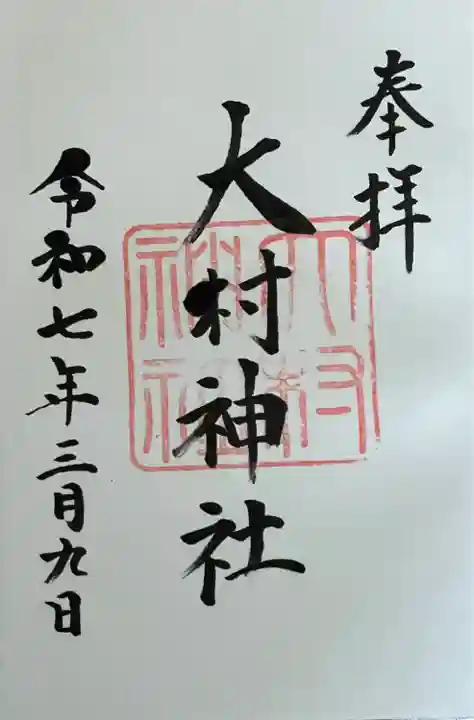 奉拝
大村神社
大村
神社
令和七年三月九日